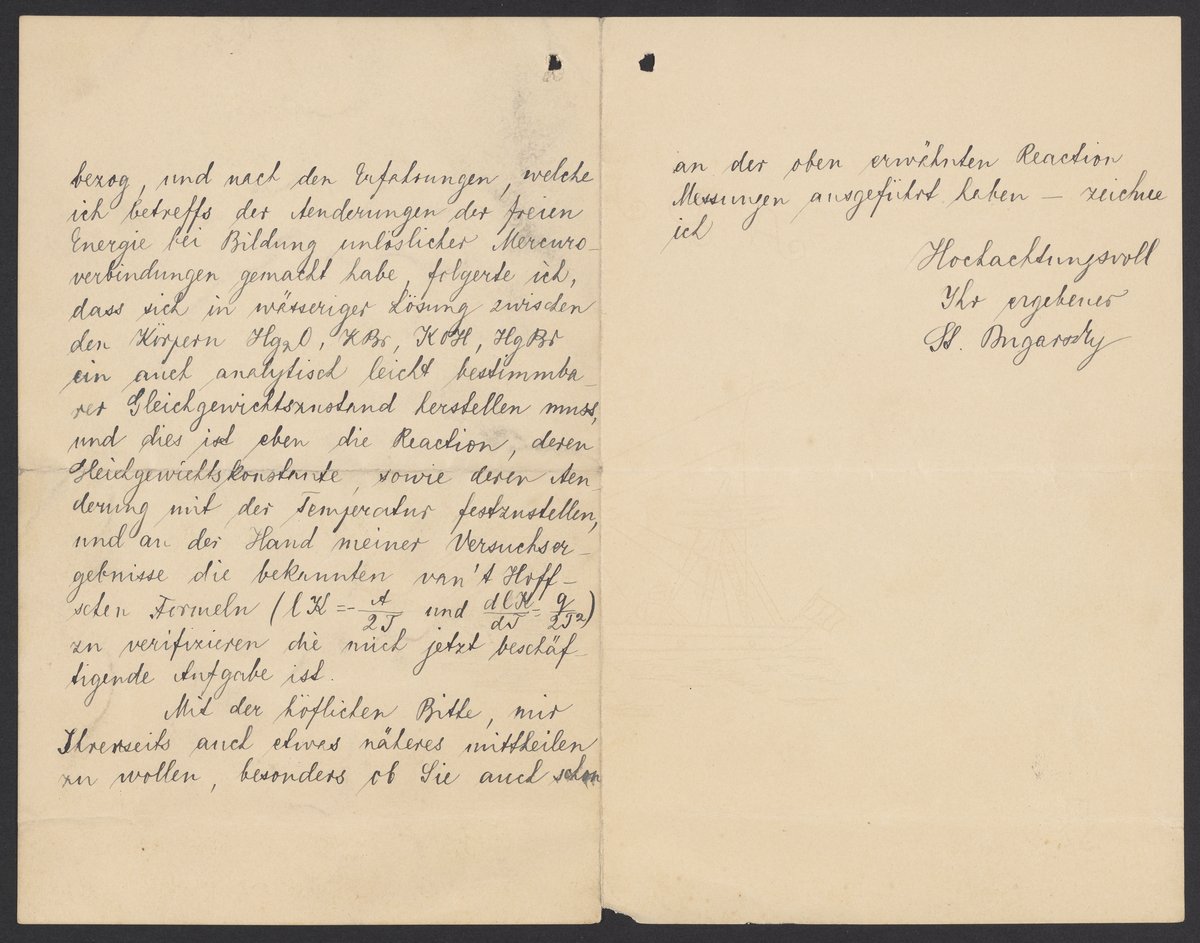 bezog, und nach den Erfahrungen, welche
ich betreffs der Aenderungen der freien
Energie bei Bildung unlöslicher Mercuro-
verbindungen gemacht habe, folgerte ich,
dass sich in wässeriger Lösung zwischen
den Körpern Hg₂O, KBr, KOH, HgBr
ein auch analytisch leicht bestimmba-
rer Gleichgewichtszustand herstellen muss,
und dies ist eben die Reaction, deren
Gleichgewichtskonstante, sowie deren Aen-
derung mit der Temperatur festzustellen,
und an der Hand meiner Versuchser-
gebnisse die bekannten van't Hoff-
schen Formeln (lK = -A/2T und dlK/dT = q/2T²)
zu verifizieren die mich jetzt beschäf-
tigende Aufgabe ist.
Mit der höflichen Bitte, mir
Ihrerseits auch etwas näheres mittheilen
zu wollen, besonders ob Sie auch schon
an der oben erwähnten Reaction
Messungen ausgeführt haben — zeichne
ich
Hochachtungsvoll
Ihr ergebener
St. Bugarszky